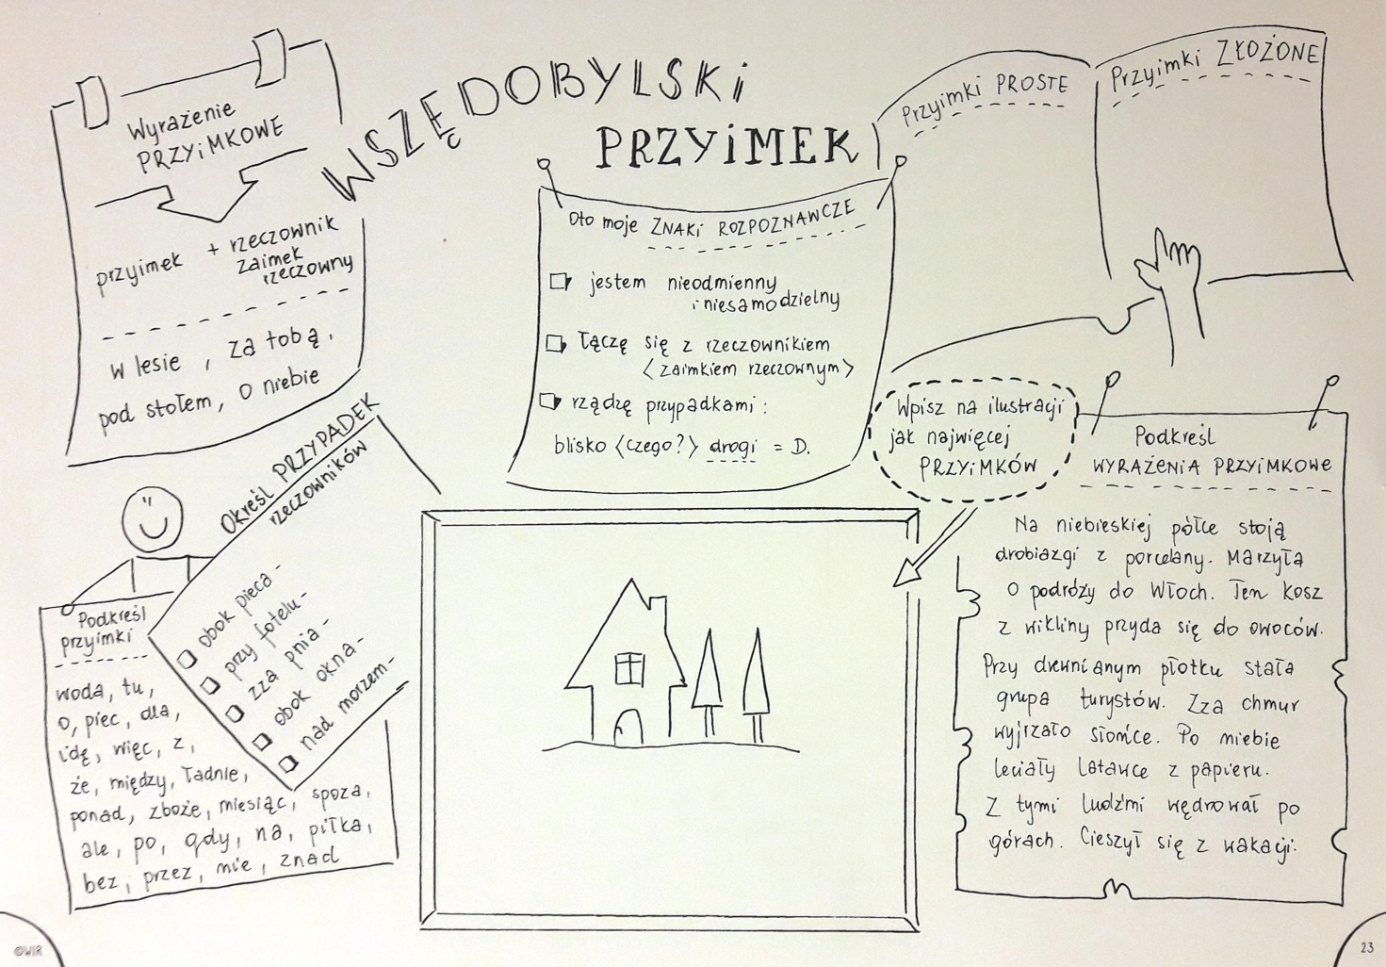 WSZĘDOBYLSKi
PRZYiMEK
Wyrażenie
PRZYiMKOWE
przyimek + rzeczownik
zaimek
rzeczowny
w lesie, za tobą,
pod stołem, o niebie
Oto moje ZNAKi ROZPOZNAWCZE
jestem nieodmienny
i niesamodzielny
łączę się z rzeczownikiem
<zaimkiem rzeczownym>
rządzę przypadkami:
blisko <czego?> drogi = D.
Przyimki PROSTE
Przyimki ZŁOŻONE
Określ PRZYPADEK
rzeczowników
obok pieca -
przy fotelu -
zza pnia -
obok okna -
nad morzem -
Podkreśl
przyimki
woda, tu,
o, piec, dla,
idę, więc, z,
że, między, ładnie,
ponad, zboże, miesiąc, spoza,
ale, po, gdy, na, piłka,
bez, przez, nie, znad
Wpisz na ilustracji
jak najwięcej
PRZYiMKÓW
Podkreśl
WYRAŻENiA PRZYiMKOWE
Na niebieskiej półce stoją
drobiazgi z porcelany. Marzyła
o podróży do Włoch. Ten kosz
z wikliny przyda się do owoców.
Przy drewnianym płotku stała
grupa turystów. Zza chmur
wyjrzało słońce. Po niebie
leciały latawce z papieru.
Z tymi ludźmi wędrował po
górach. Cieszył się z wakacji.
©WiR
23